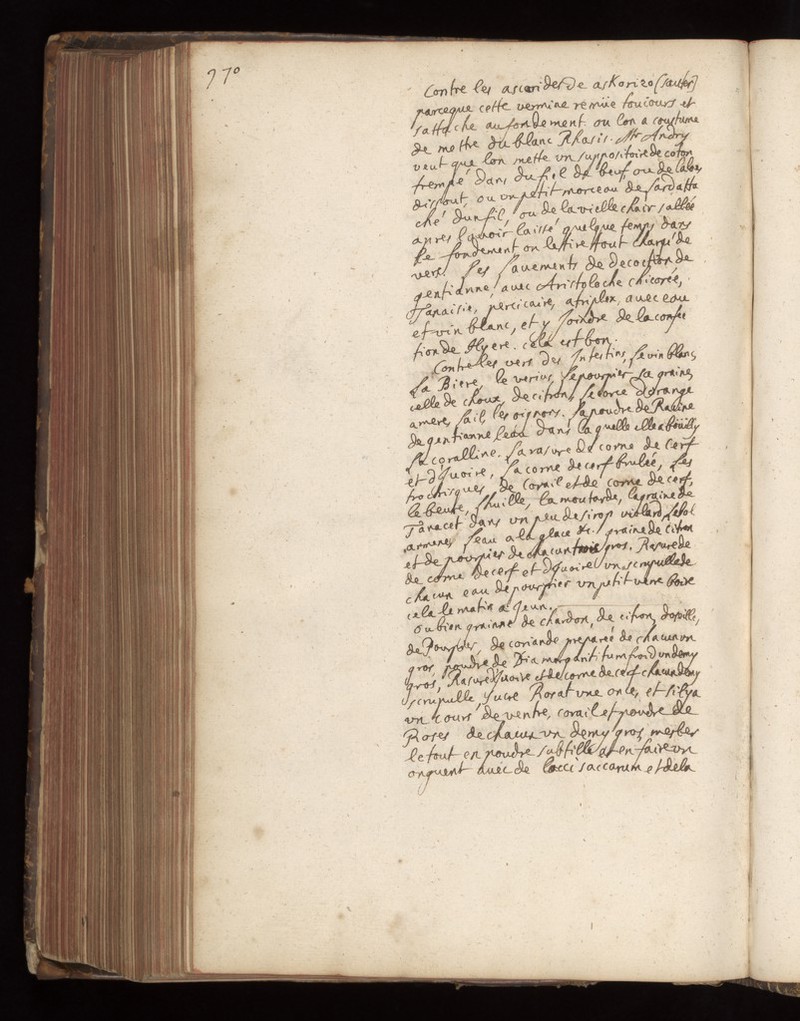 970
Contre les ascarides de askorizo (sauter)
parceque cette vermine remüe toujours et
sattache au fondement. ou lon a coustume
de mettre du blanc Rhasis. Mr Andry
veut que lon mette vn suppositoire de coton
trempé dans du fiel de beuf ou de laloes
dissout, ou vn petit morceau de lard atta
ché dun fil, ou de la vielle chair sallée
apres lavoir laissé quelque temps dans
le fondement on le tire tout chargé de
vers. Les lauements de decoction de
gentianne, avec Aristoloche chicorée,
Tanaisie, percicaire, atriplex, avec eau
et vin blanc, et y joindre de la confec
tion de Hyere. cela est bon.
Contre les vers des Intestins, le vin blanc,
La Biere, le verius, le pourpier sa graine,
celle de choux, de citron, lecorce dorange
amere, lail, les oignons. la poudre de Racine
de gentianne leau dans laquelle elle a boüilly
La coralline. La rasure de corne de cerf
et dyuoire, la corne de cerf brulée, les
trochisques de Corail et de corne de cerf,
le beure, lhuille, la moutarde, la graine de
Tanacet dans vn peu de sirop violard, le bol
armene, leau a la glace &c. graine de citron
et de pourpier de chacun trois gros. Rasure de
de corne de cerf et dyuoire vn scrupulle de
chacun eau de pourpier vn petit verre boire
cela le matin a jeun.
Ou bien grainne de chardon, de citron, dozeille,
de Pourpier, de coriande preparée de chacun vn
gros, poudre de Diamargaritum froid vn demy
gros, Rasure dyuoire et de corne de cerf chacun demy
scrupulle, sucre Rosat vne once, et sil y a
vn cours de ventre, corail et poudre de
Roses de chacun vn demy gros, mesler
le tout en poudre subtille et en faire vn
onguent avec de saccarum et dela